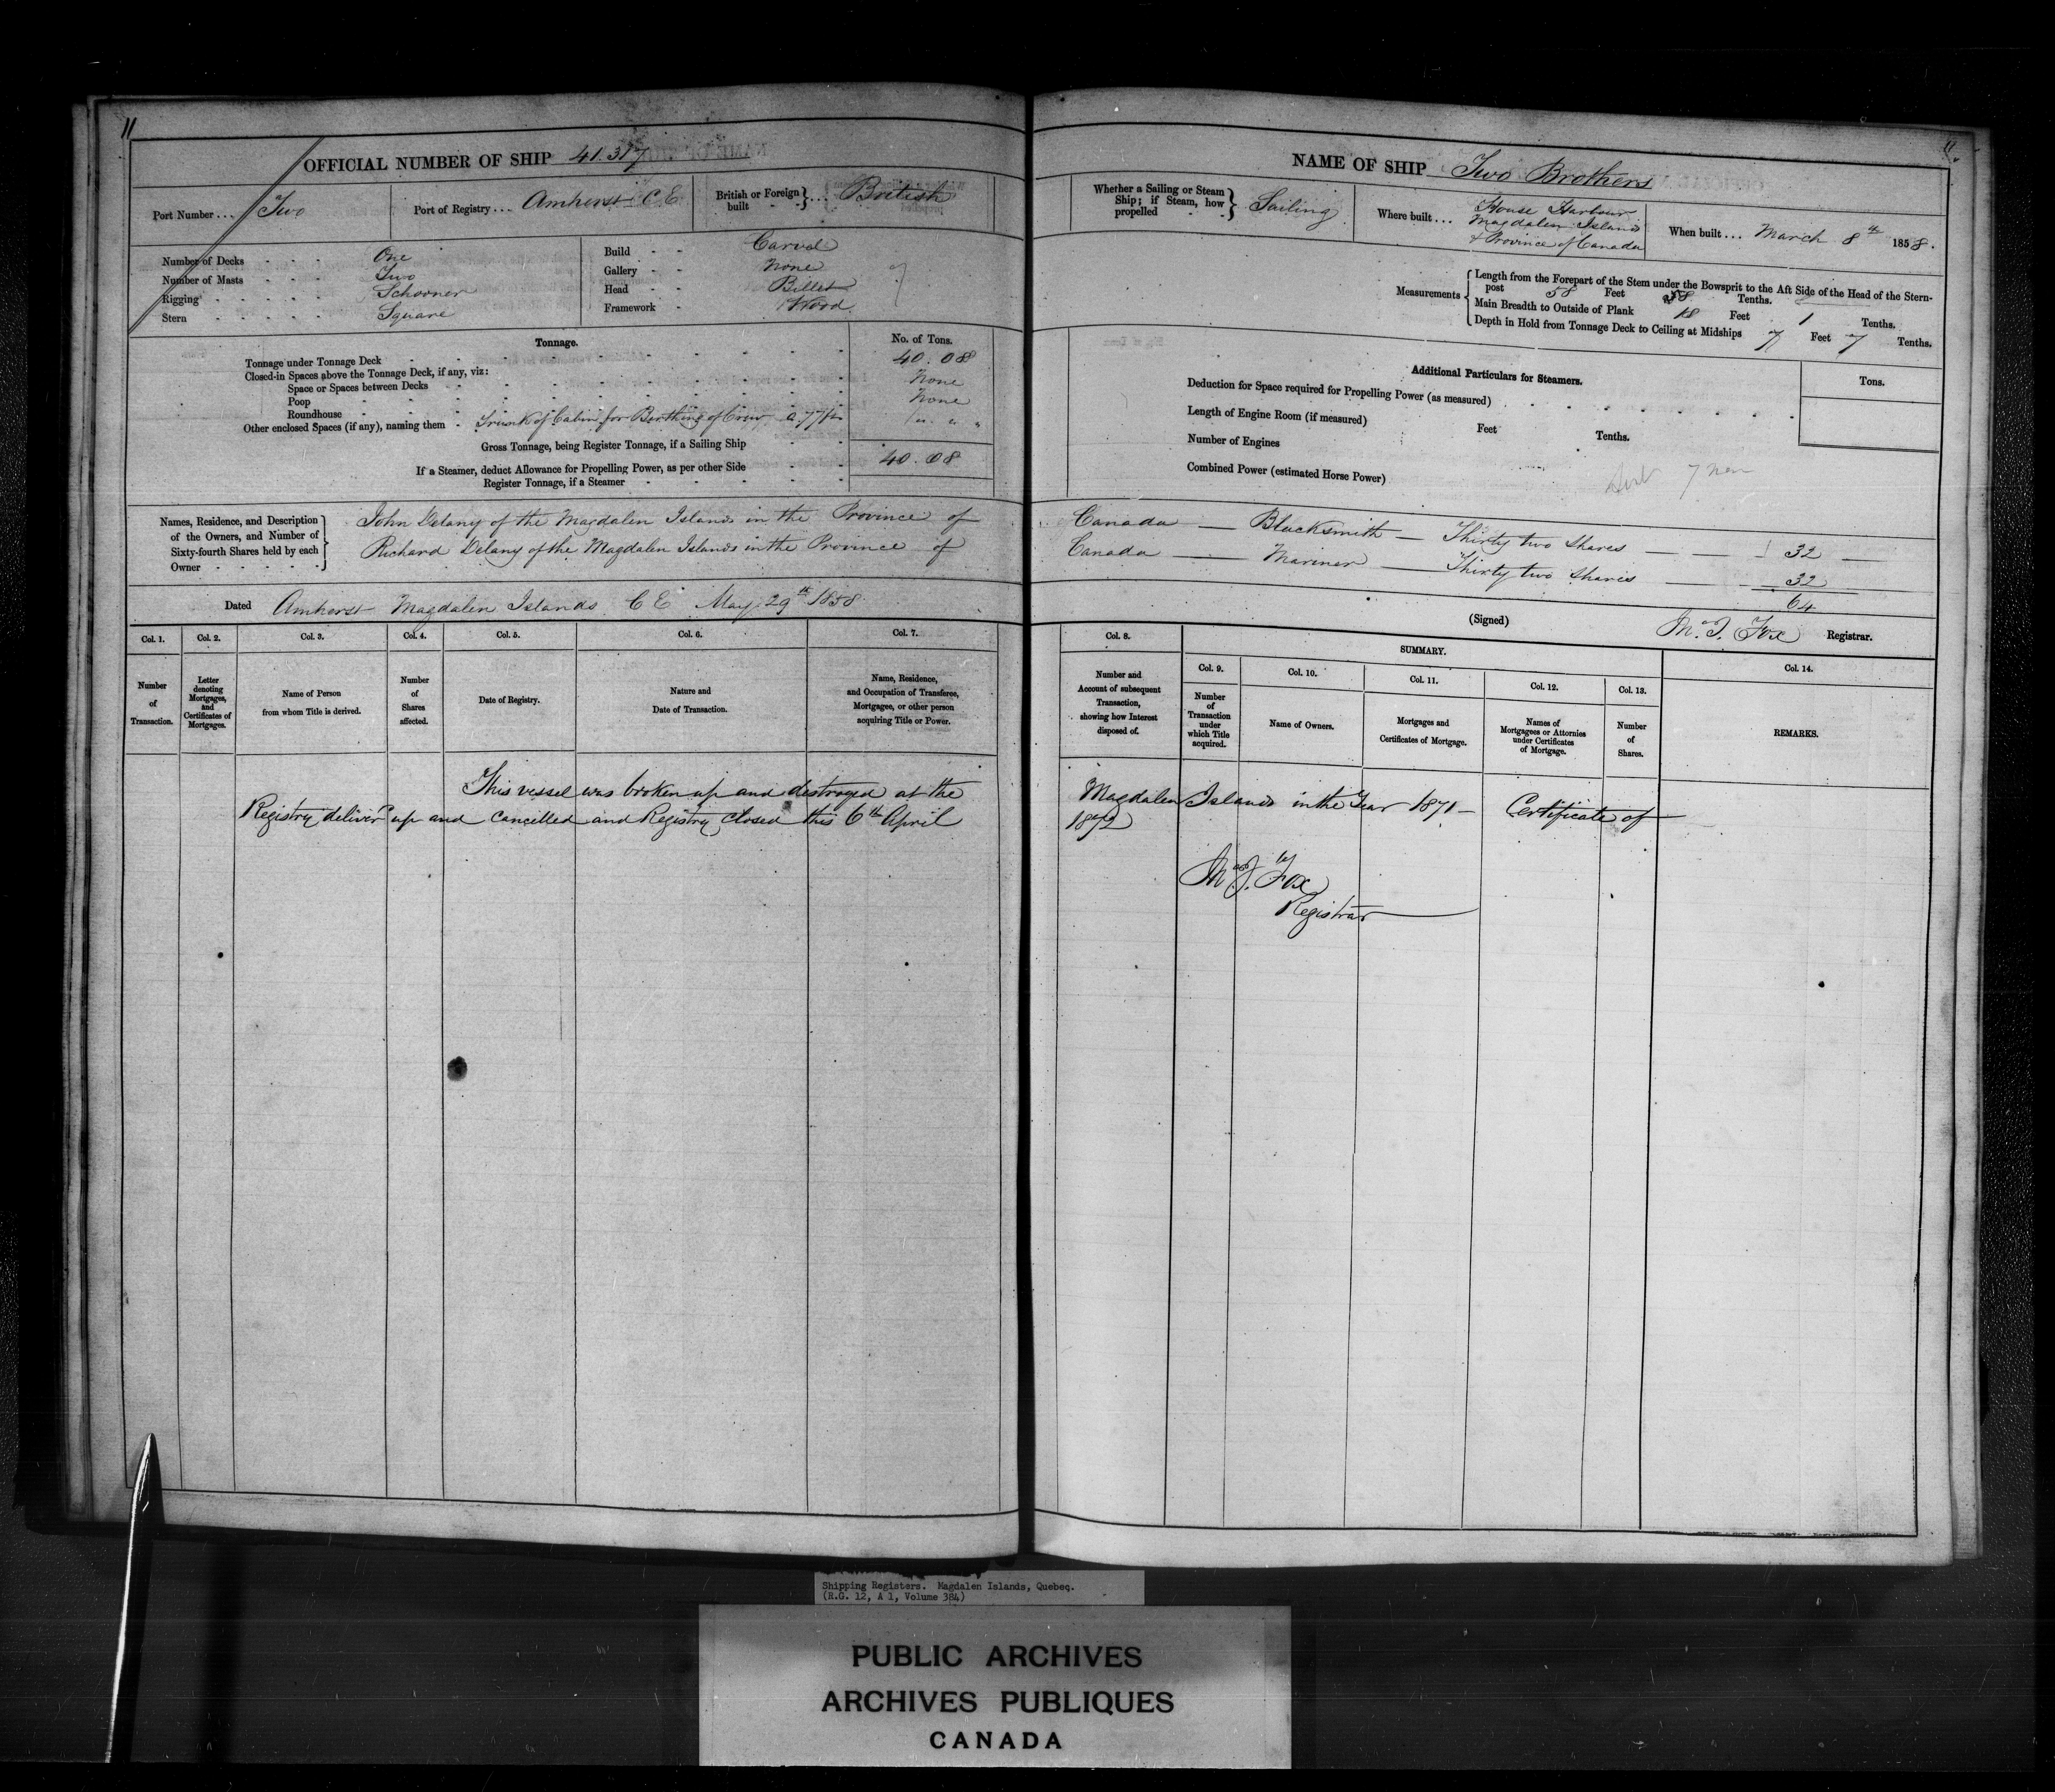 11
OFFICIAL NUMBER OF SHIP 41.317
Port Number ... Two
Port of Registry ... Amherst C E
British or Foreign built } ... British
Number of Decks One
Number of Masts Two
Rigging Schooner
Stern Square
Build Carvel
Gallery None
Head Billet
Framework Wood
Tonnage. No. of Tons.
Tonnage under Tonnage Deck 40.08
Closed-in Spaces above the Tonnage Deck, if any, viz:
Space or Spaces between Decks None
Poop None
Roundhouse
Other enclosed Spaces (if any), naming them Trunk of Cabin for Berthing of Crew
Gross Tonnage, being Register Tonnage, if a Sailing Ship 40.08
If a Steamer, deduct Allowance for Propelling Power, as per other Side
Register Tonnage, if a Steamer
Names, Residence, and Description of the Owners, and Number of Sixty-fourth Shares held by each Owner
John Delany of the Magdalen Islands in the Province of
Richard Delany of the Magdalen Islands in the Province of
Dated Amherst Magdalen Islands C E May 29th 1858.
Col. 1. Col. 2. Col. 3. Col. 4. Col. 5. Col. 6. Col. 7.
Number of Transaction.
Letter denoting Mortgages, and Certificates of Mortgages.
Name of Person from whom Title is derived.
Number of Shares affected.
Date of Registry.
Nature and Date of Transaction.
Name, Residence, and Occupation of Transferee, Mortgagee, or other person acquiring Title or Power.
This vessel was broken up and destroyed at the
Registry deliver'd up and cancelled and Registry Closed this 6th April
11
NAME OF SHIP Two Brothers
Whether a Sailing or Steam Ship; if Steam, how propelled } Sailing
Where built ... House Harbour
Magdalen Islands
& Province of Canada
When built ... March 8th 1858.
Measurements
Length from the Forepart of the Stem under the Bowsprit to the Aft Side of the Head of the Stern-
post 58 Feet Tenths.
Main Breadth to Outside of Plank 18 Feet 1 Tenths.
Depth in Hold from Tonnage Deck to Ceiling at Midships 7 Feet 7 Tenths.
Additional Particulars for Steamers. Tons.
Deduction for Space required for Propelling Power (as measured)
Length of Engine Room (if measured) Feet Tenths.
Number of Engines
Combined Power (estimated Horse Power)
Canada — Blacksmith — Thirty two Shares — 32
Canada — Mariner — Thirty two Shares — 32
64
(Signed) Registrar.
Col. 8. SUMMARY. Col. 14.
Col. 9. Col. 10. Col. 11. Col. 12. Col. 13.
Number and Account of subsequent Transaction, showing how Interest disposed of.
Number of Transaction under which Title acquired.
Name of Owners.
Mortgages and Certificates of Mortgage.
Names of Mortgagees or Attornies under Certificates of Mortgage.
Number of Shares.
REMARKS.
Magdalen Islands in the Year 1871 – Certificate of
1872
Fox
Registrar
Shipping Registers. Magdalen Islands, Quebec.
(R.G. 12, A 1, Volume 384)
PUBLIC ARCHIVES
ARCHIVES PUBLIQUES
CANADA